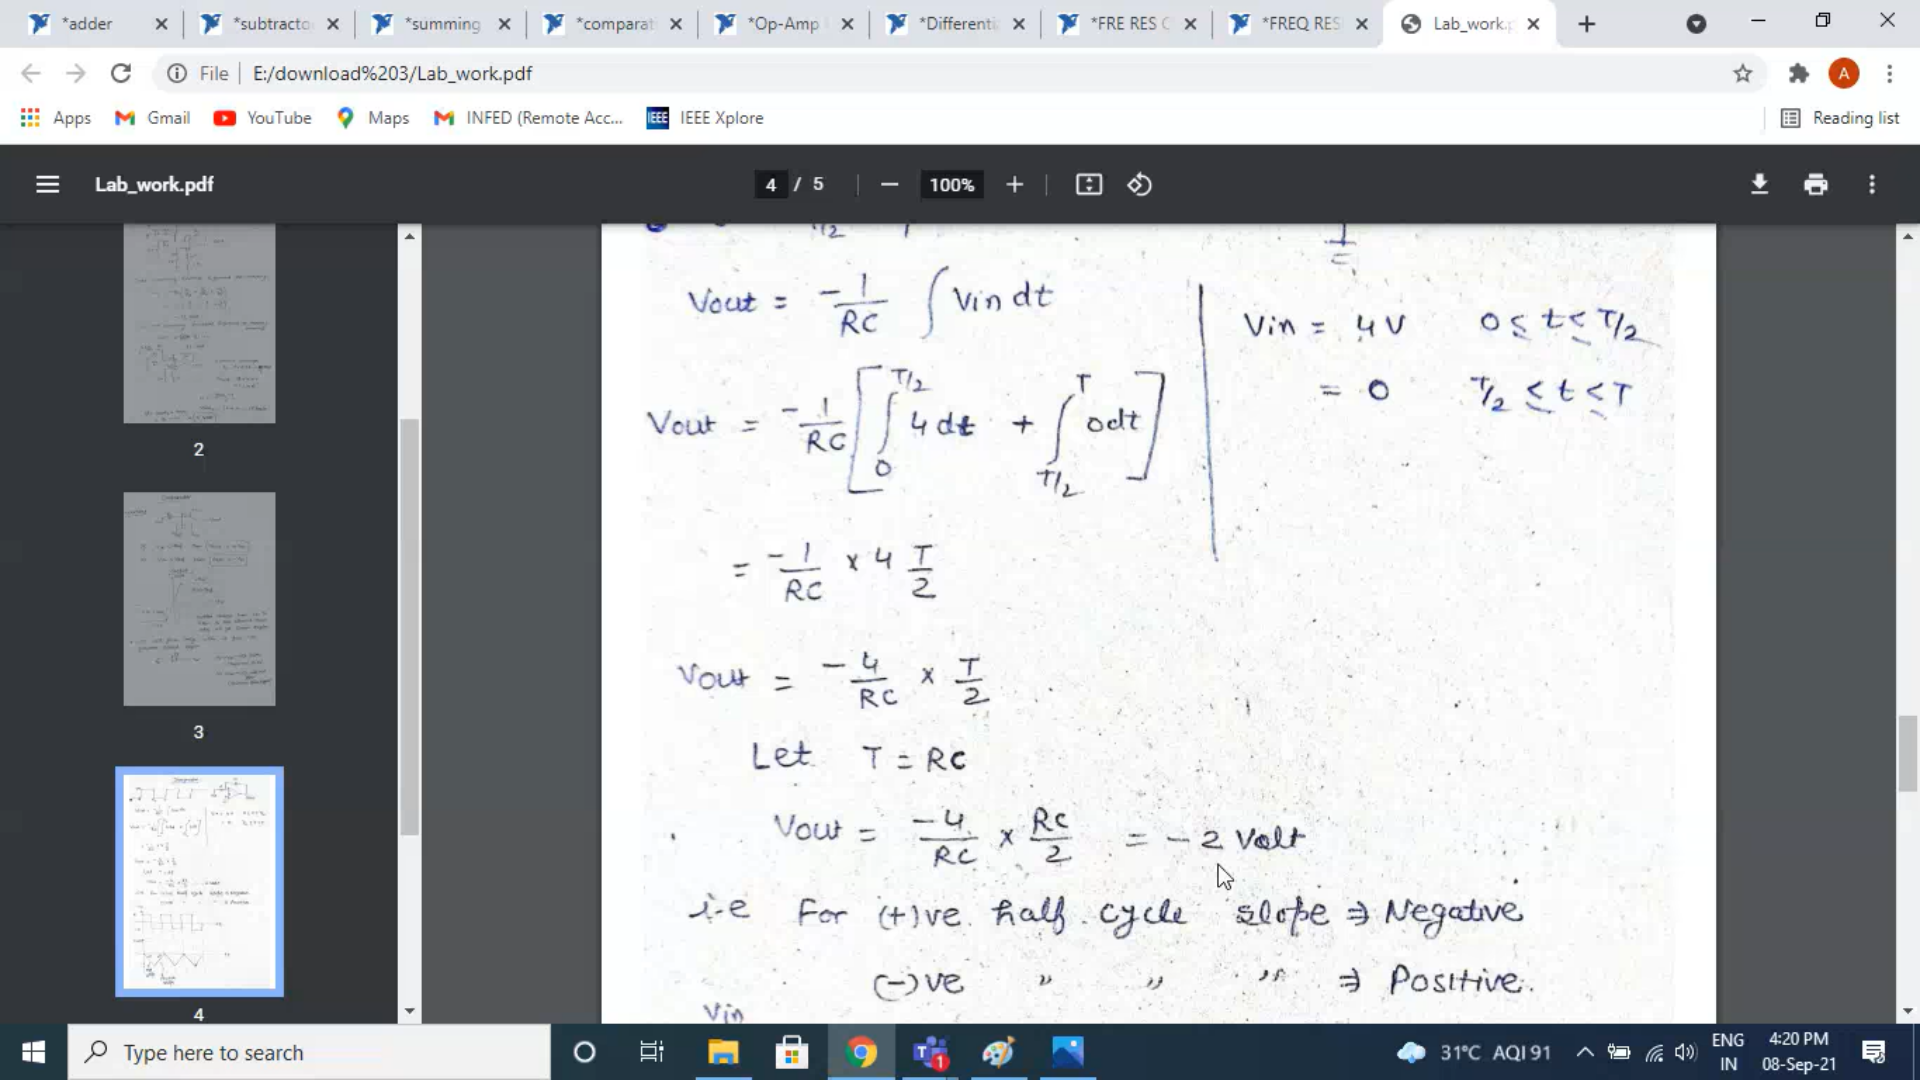 *adder
*subtracto
*summing
*comparat
*Op-Amp
*Differenti
*FRE RES C
*FREQ RES
Lab_work.p
File | E:/download%203/Lab_work.pdf
A
Apps
Gmail
YouTube
Maps
INFED (Remote Acc...
IEEE
IEEE Xplore
Reading list
Lab_work.pdf
4 / 5
100%
2
3
4
Vout = -1/RC ∫ Vin dt
Vin = 4V 0 ≤ t ≤ T/2
= 0 T/2 ≤ t ≤ T
Vout = -1/RC [ ∫₀^T/2 4 dt + ∫_T/2^T 0dt ]
= -1/RC × 4 T/2
Vout = -4/RC × T/2
Let T = RC
Vout = -4/RC × RC/2 = -2 Volt
i.e For (+)ve half cycle slope ⇒ Negative
(-)ve " " " ⇒ Positive.
Vin
Type here to search
1
31°C AQI 91
ENG
IN
4:20 PM
08-Sep-21